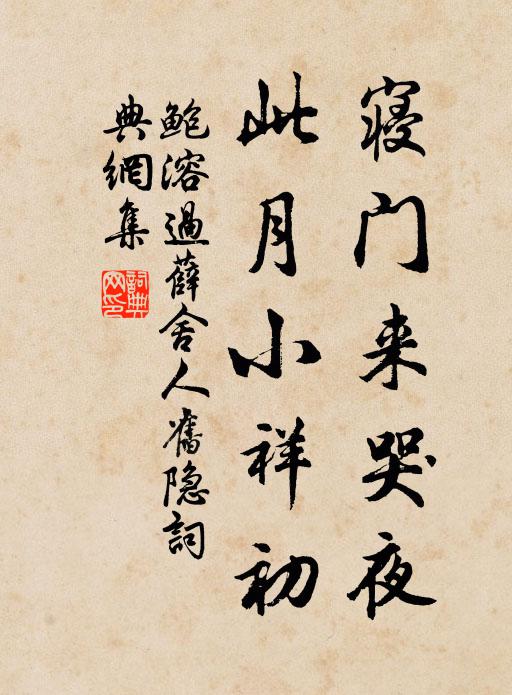 寝门来哭夜
此月小祥初
鲍溶過薛舍人舊隐詞
典網集
詞典网印